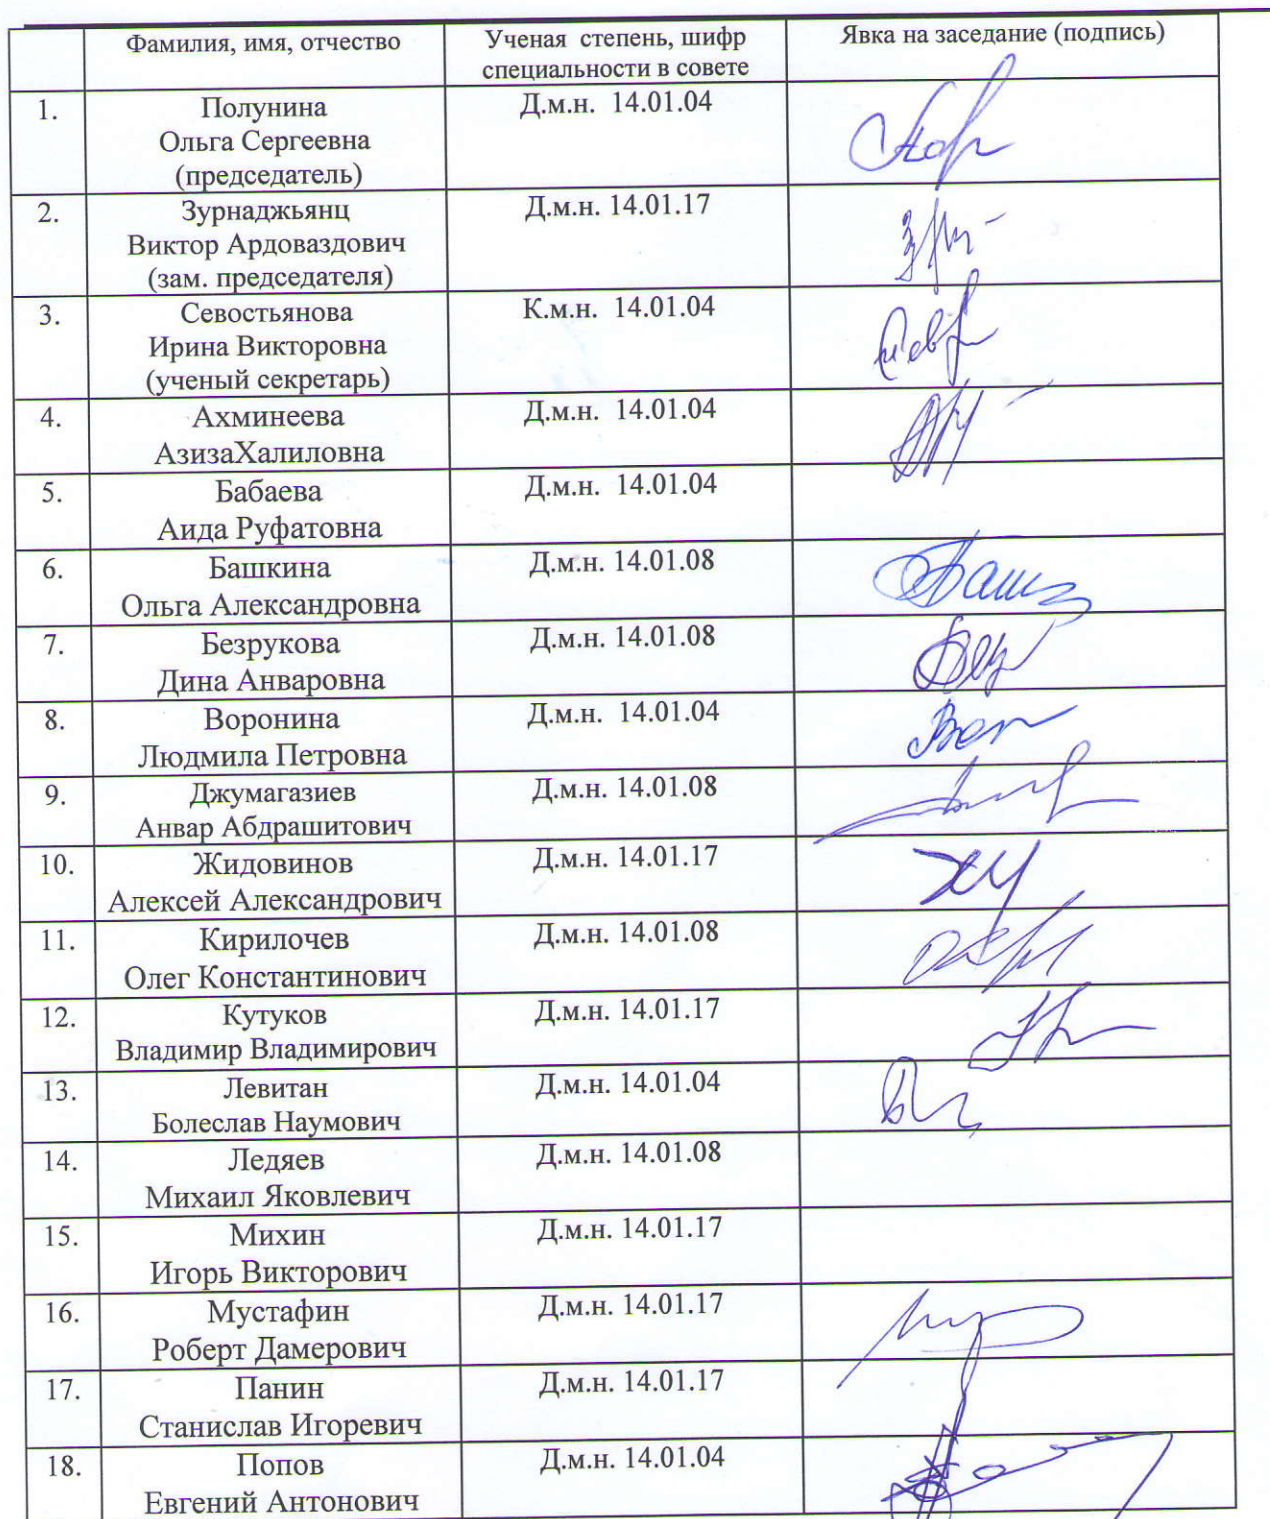 Фамилия, имя, отчество
Ученая степень, шифр
специальности в совете
Явка на заседание (подпись)
1.
Полунина
Ольга Сергеевна
(председатель)
Д.м.н. 14.01.04
2.
Зурнаджьянц
Виктор Ардоваздович
(зам. председателя)
Д.м.н. 14.01.17
3.
Севостьянова
Ирина Викторовна
(ученый секретарь)
К.м.н. 14.01.04
4.
Ахминеева
АзизаХалиловна
Д.м.н. 14.01.04
5.
Бабаева
Аида Руфатовна
Д.м.н. 14.01.04
6.
Башкина
Ольга Александровна
Д.м.н. 14.01.08
7.
Безрукова
Дина Анваровна
Д.м.н. 14.01.08
8.
Воронина
Людмила Петровна
Д.м.н. 14.01.04
9.
Джумагазиев
Анвар Абдрашитович
Д.м.н. 14.01.08
10.
Жидовинов
Алексей Александрович
Д.м.н. 14.01.17
11.
Кирилочев
Олег Константинович
Д.м.н. 14.01.08
12.
Кутуков
Владимир Владимирович
Д.м.н. 14.01.17
13.
Левитан
Болеслав Наумович
Д.м.н. 14.01.04
14.
Ледяев
Михаил Яковлевич
Д.м.н. 14.01.08
15.
Михин
Игорь Викторович
Д.м.н. 14.01.17
16.
Мустафин
Роберт Дамерович
Д.м.н. 14.01.17
17.
Панин
Станислав Игоревич
Д.м.н. 14.01.17
18.
Попов
Евгений Антонович
Д.м.н. 14.01.04